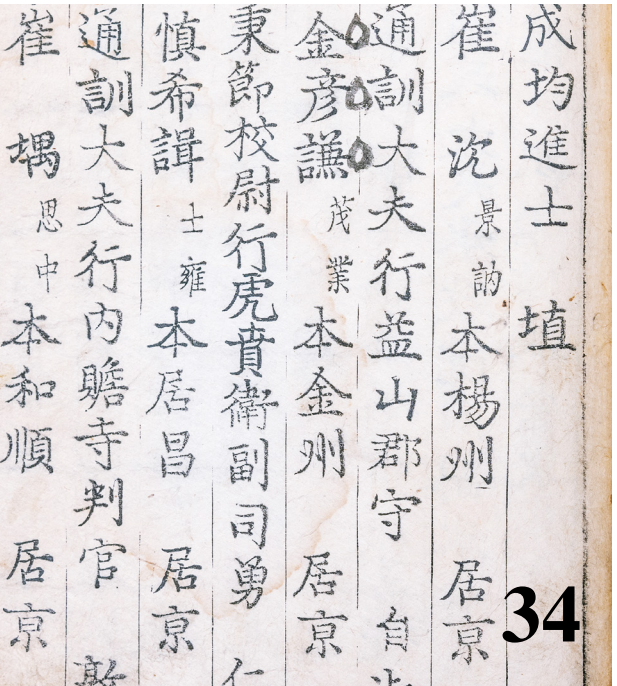 成均進士 埴
崔 沈 景訥 本楊州 居京
通訓大夫行益山郡守 自
金彦謙 茂業 本金州 居京
秉節校尉行虎賁衛副司勇 仁
慎希諿 士雍 本居昌 居京
通訓大夫行内贍寺判官
崔 堣 思中 本和順 居京
34